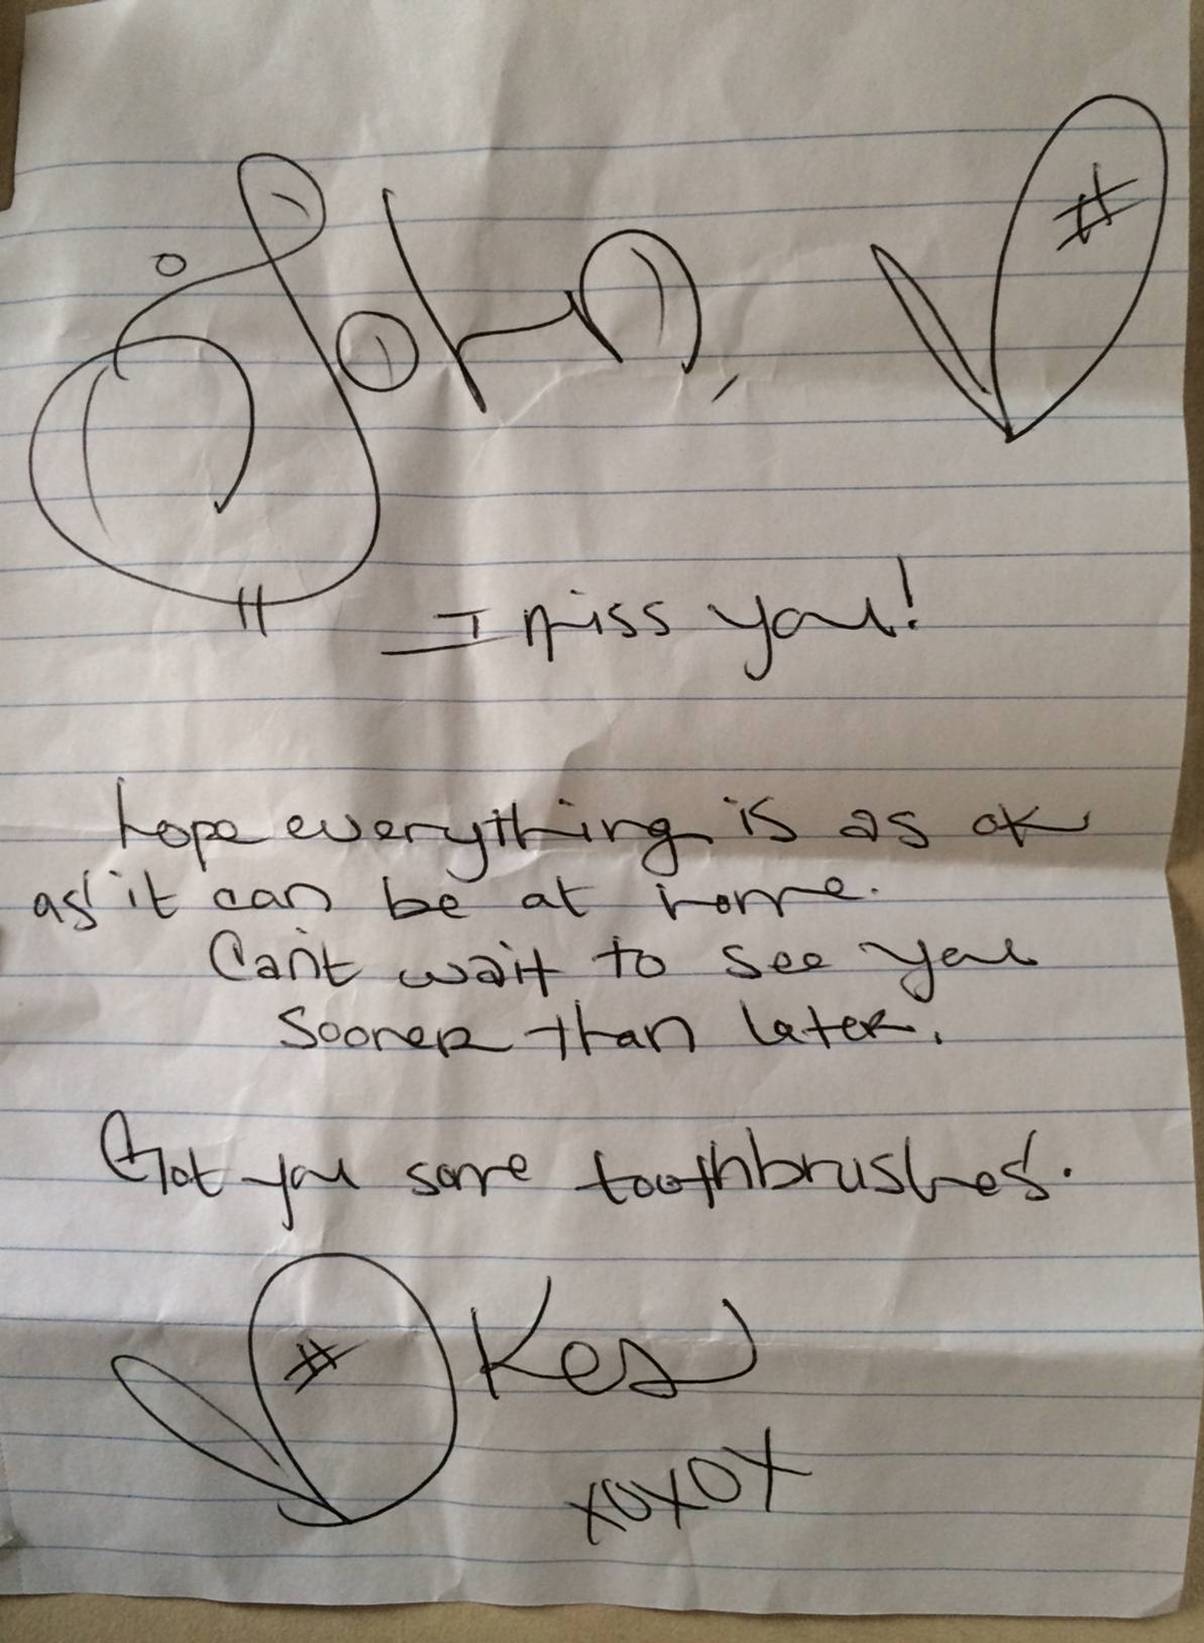 John,
I miss you!
hope everything is as ok
as it can be at home.
Can't wait to see you
sooner than later.
Got you some toothbrushes.
Kes
xoxox